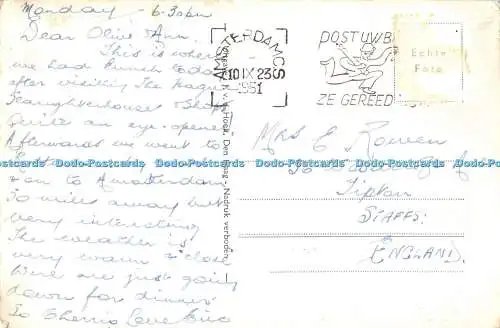 Monday - 6-30pm
Dear Olive Ann,
This is where
we had lunch today
after visiting The Hague
Slaughterhouse & Shops
Quite an eye-opener
Afterwards we went to
& on to Amsterdam
30 miles away but
very interesting
The weather is
very warm & close
We are just going
down for dinner
Love Eric
AMSTERDAM CS
10 IX 23
1951
POST UW
ZE GEREED
Echte
Foto
Hoek, Den Haag - Nadruk verboden
Mrs E Rowen
Tipton
STAFFS:
ENGLAND.
Dodo-Postcards Dodo-Postcards Dodo-Postcards Dodo-Postcards Dodo-Postcards